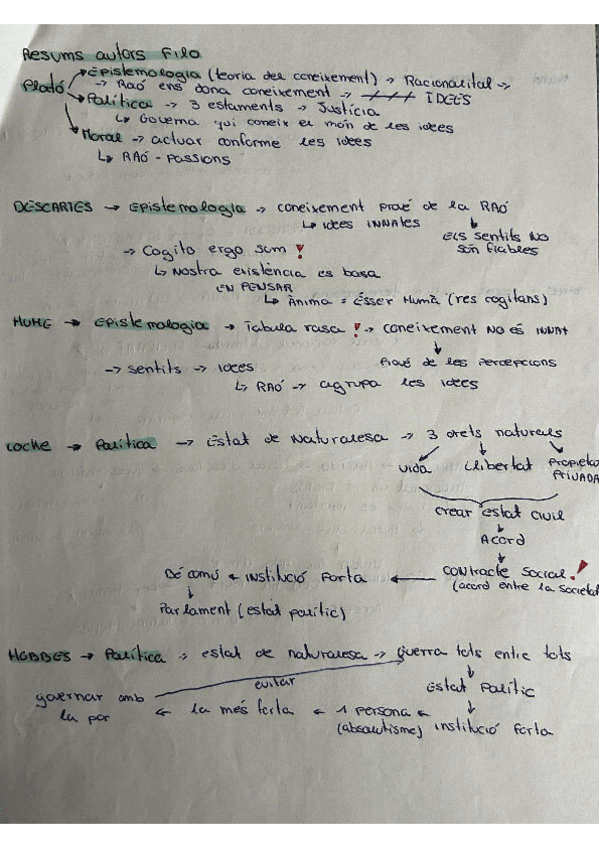 Resums autors Filo
Plató → Epistemologia (teoria del coneixement) → Racionalitat →
→ Raó ens dona coneixement → IDEES
→ Política → 3 estaments → Justícia
↳ Governa qui coneix el món de les idees
→ Moral → actuar conforme les idees
↳ RAÓ - PASSIONS
DESCARTES → Epistemologia → coneixement prové de la RAÓ
↳ idees INNATES
↓
Els sentits NO
són fiables
→ Cogito ergo sum !
↳ Nostra existència es basa
EN PENSAR
↳ Ànima = Ésser Humà (res cogitans)
HUME → Epistemologia → Tabula rasa ! → coneixement NO ÉS INNAT
↓
Prové de les percepcions
→ sentits → idees
↳ RAÓ → agrupa les idees
LOCKE → Política → Estat de Naturalesa → 3 drets naturals
vida llibertat Propietat
PRIVADA
crear estat civil
↓
Acord
↓
Bé comú ← institució forta ← contracte social !
(acord entre la societat
↓
Parlament (estat polític)
HOBBES → Política → estat de naturalesa → guerra tots entre tots
evitar
↓
Estat Polític
↓
governar amb la por ← la més forta ← 1 persona ← institució forta
(absolutisme)